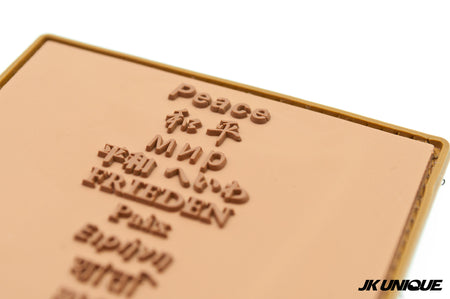 Peace
和平
мир
平和 へいわ
FRIEDEN
Paix
Ειρήνη
JK UNIQUE